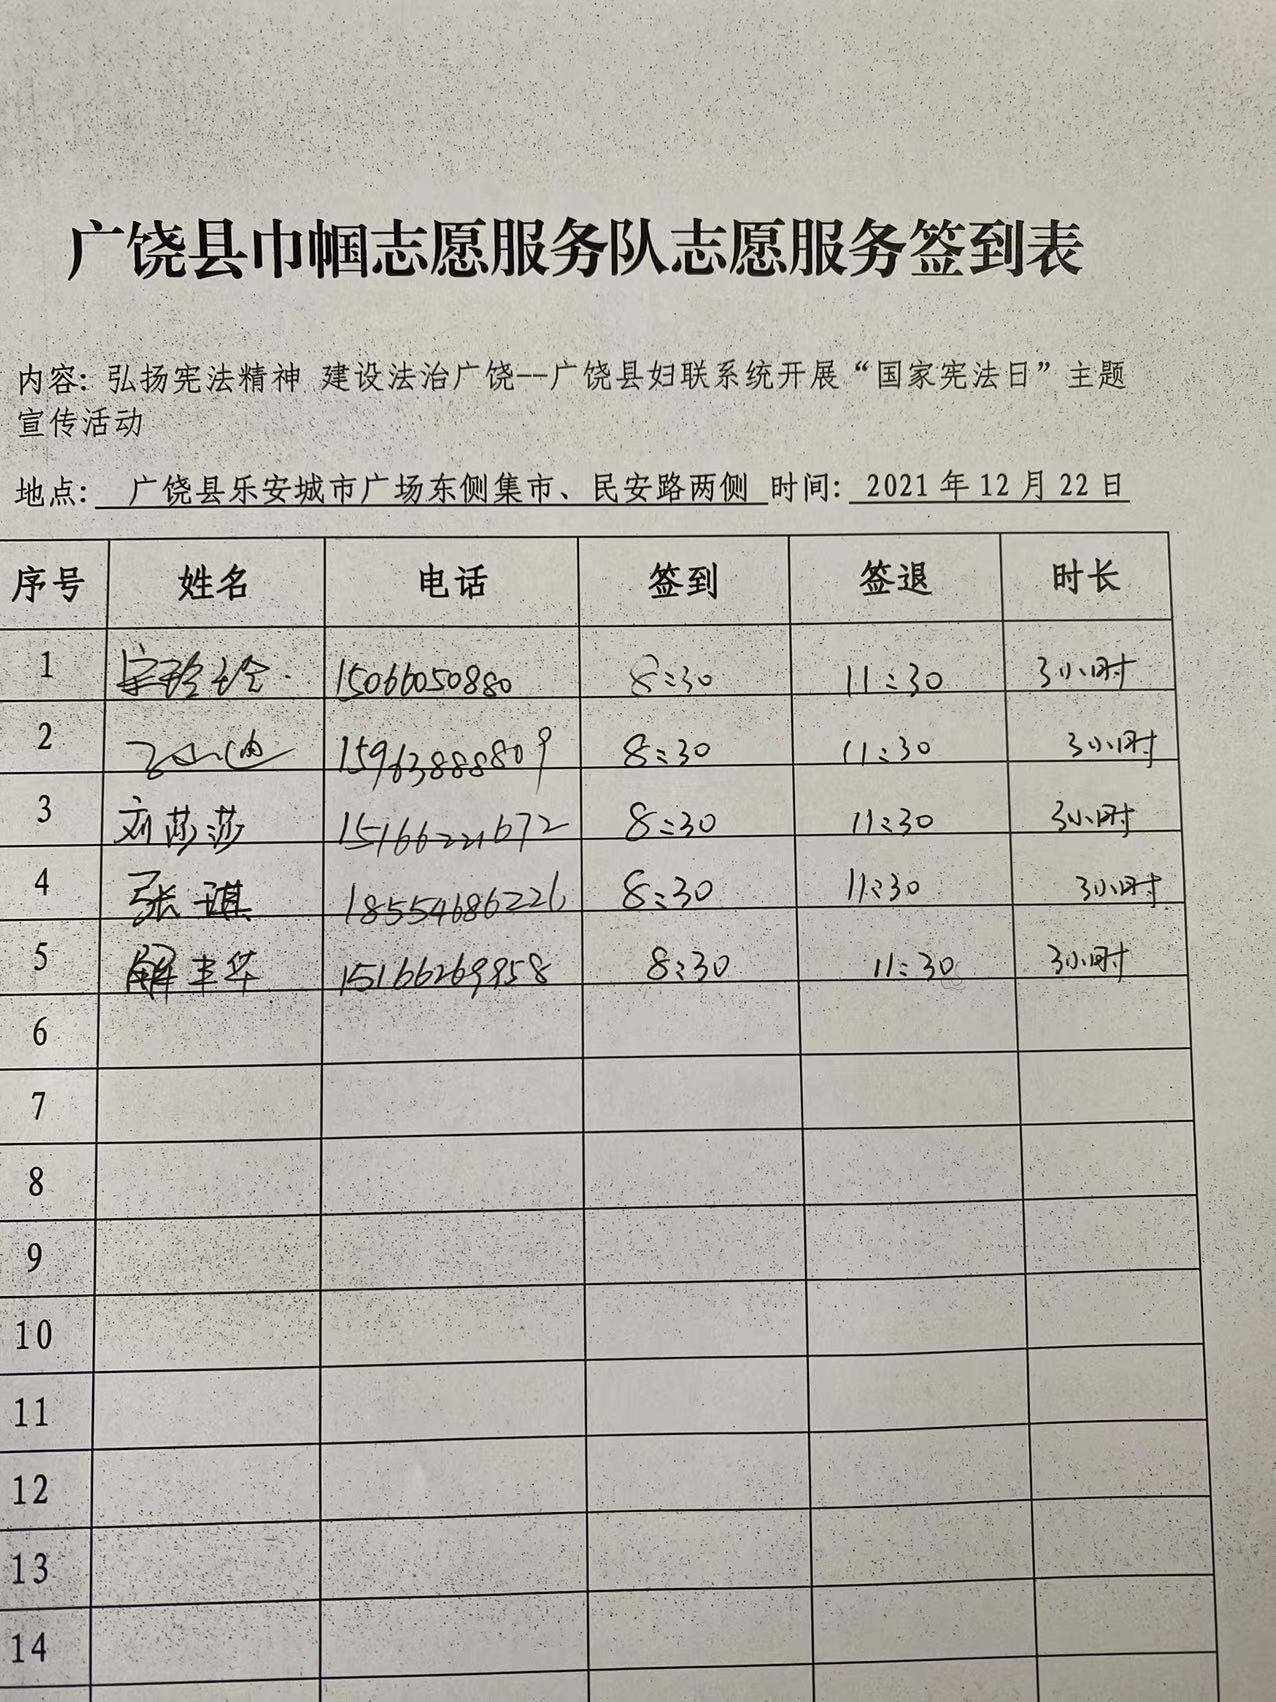 广饶县巾帼志愿服务队志愿服务签到表
内容：弘扬宪法精神 建设法治广饶--广饶县妇联系统开展“国家宪法日”主题
宣传活动
地点： 广饶县乐安城市广场东侧集市、民安路两侧 时间：2021年12月22日
序号 姓名 电话 签到 签退 时长
1 15066050880 8:30 11:30 3小时
2 15963888809 8:30 11:30 3小时
3 刘莎莎 15166221672 8:30 11:30 3小时
4 张琪 18554686226 8:30 11:30 3小时
5 解丰华 15166269958 8:30 11:30 3小时
6
7
8
9
10
11
12
13
14